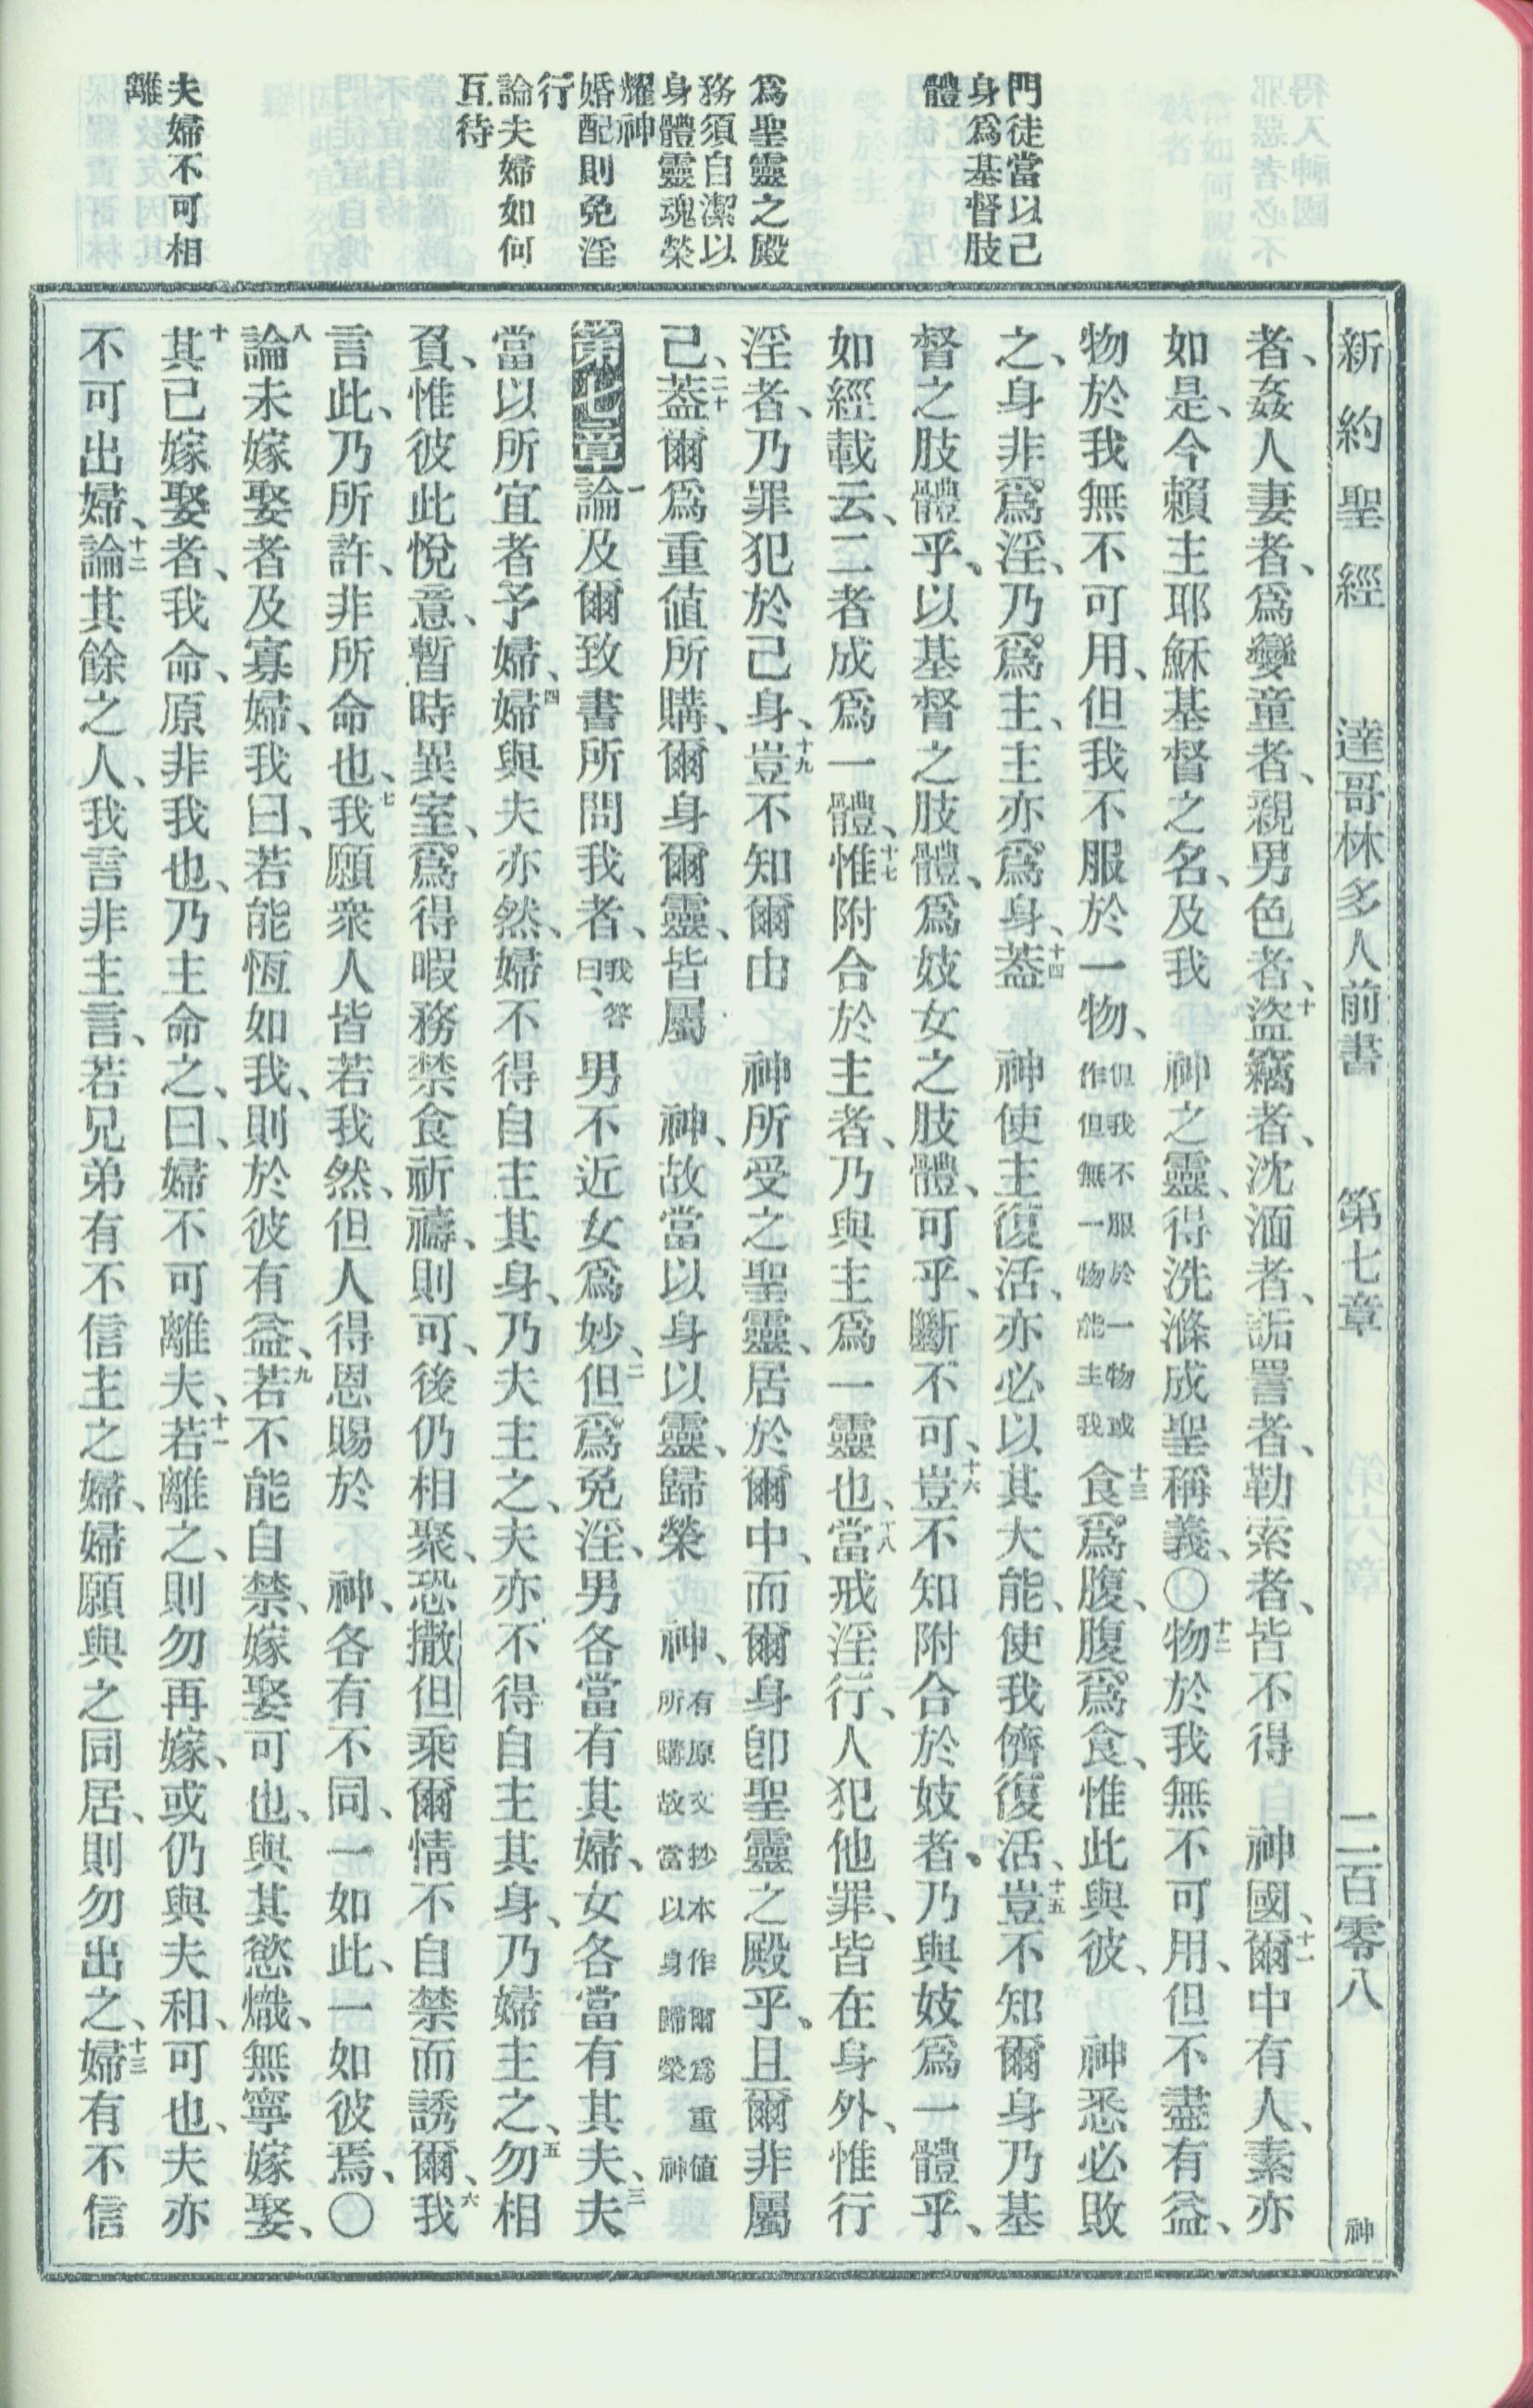 新約聖經 達哥林多人前書 第七章 二百零八 神
門徒當以己
身爲基督肢
體
爲聖靈之殿
務須自潔以
身體靈魂榮
耀神
婚配則免淫
行
論夫婦如何
互待
夫婦不可相
離
者、姦人妻者、爲孌童者、親男色者、十盜竊者、沈湎者、詬詈者、勒索者、皆不得 神國、十一爾中有人、素亦
如是、今賴主耶穌基督之名、及我 神之靈、得洗滌成聖稱義、〇十二物於我無不可用、但不盡有益、
物於我無不可用、但我不服於一物、但我不服於一物或作但無一物能主我十三食爲腹、腹爲食、惟此與彼、 神悉必敗
之、身非爲淫、乃爲主、主亦爲身、十四蓋 神使主復活、亦必以其大能、使我儕復活、十五豈不知爾身乃基
督之肢體乎、以基督之肢體、爲妓女之肢體、可乎、斷不可、十六豈不知附合於妓者、乃與妓爲一體乎、
如經載云、二者成爲一體、十七惟附合於主者、乃與主爲一靈也、十八當戒淫行、人犯他罪、皆在身外、惟行
淫者、乃罪犯於己身、十九豈不知爾由 神所受之聖靈、居於爾中、而爾身卽聖靈之殿乎、且爾非屬
己、二十蓋爾爲重値所購、爾身爾靈、皆屬 神、故當以身以靈、歸榮 神、有原文抄本作爾爲重値所購故當以身歸榮神
第七章一論及爾致書所問我者、我答曰、男不近女爲妙、二但爲免淫、男各當有其婦、女各當有其夫、三夫
當以所宜者予婦、四婦與夫亦然、婦不得自主其身、乃夫主之、夫亦不得自主其身、乃婦主之、五勿相
負、惟彼此悅意、暫時異室、爲得暇務禁食祈禱、則可、後仍相聚、恐撒但乘爾情不自禁而誘爾、六我
言此、乃所許、非所命也、七我願衆人皆若我然、但人得恩賜於 神、各有不同、一如此、一如彼焉、〇
八論未嫁娶者及寡婦、我曰、若能恆如我、則於彼有益、九若不能自禁、嫁娶可也、與其慾熾、無寧嫁娶、
十其已嫁娶者、我命、原非我也、乃主命之、曰、婦不可離夫、十一若離之、則勿再嫁、或仍與夫和、可也、夫亦
不可出婦、十二論其餘之人、我言非主言、若兄弟有不信主之婦、婦願與之同居、則勿出之、十三婦有不信